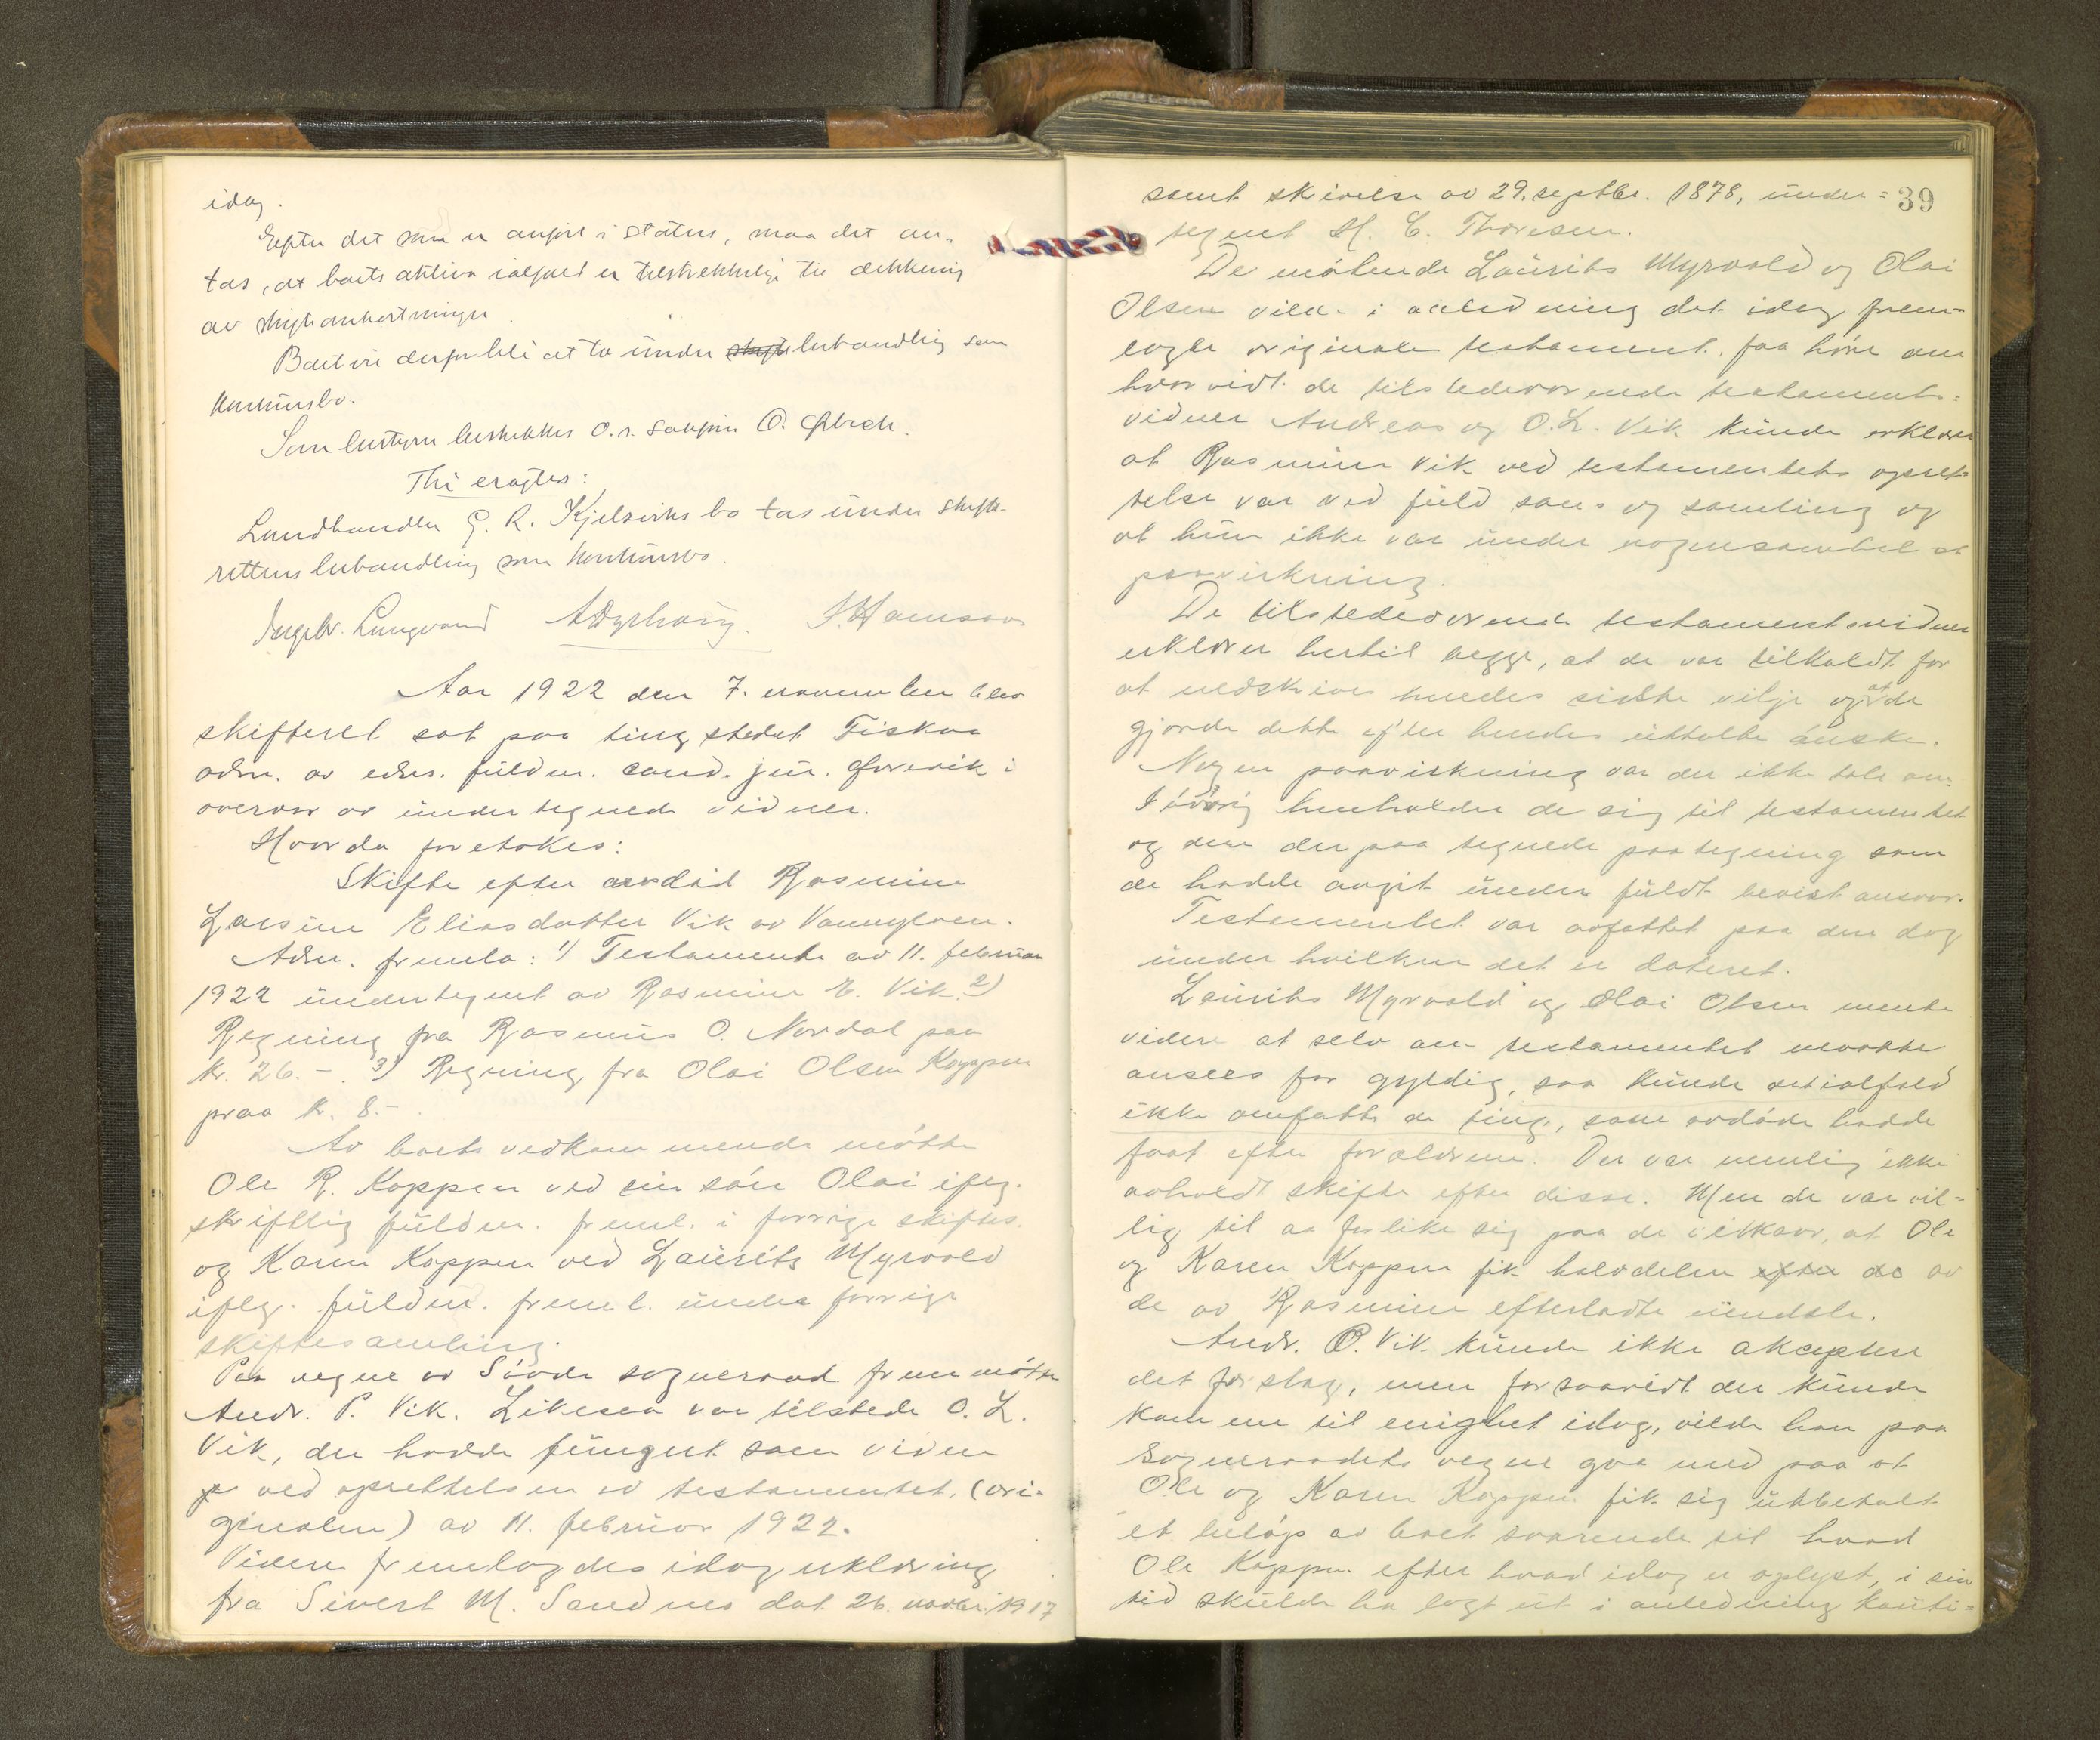 idag.
Efter det som er anført i status, maa det an-
tas, at boets aktiva ialfald er tilstrekkelige til dækkning
av skifteomkostninger.
Boet vil derfor bli at ta under skifte behandling som
konkursbo.
Som bestyrer beskikkes o.r. sakfører O.
Thi eragtes:
Landhandler G. R. Kjelsviks bo tas under skifte-
rettens behandling som konkursbo.
Ingebr. Lungvand A Dyrhaug. J. Hamson
Aar 1922 den 7. november blev
skifteret sat paa tingstedet Fiskaa
adm. av edsv. fuldm. cand. jur. Grevik i
overvær av undertegnede vidner.
Hvorda foretokes:
Skifte efter avdød Rasmine
Larsine Eliasdatter Vik av Vannylven.
Adm. fremla: 1) Testamente av 11. februar
1922 undertegnet av Rasmine E. Vik. 2)
Regning fra Rasmus O. Nordal paa
kr. 26.-. 3) Regning fra Olai Olsen Koppen
paa kr. 8.-.
Av boets vedkommende møtte
Ole R. Koppen ved sin søn Olai iflg.
skriftlig fuldm. freml. i forrige skiftes.
og Karen Koppen ved Laurits Myrvold
iflg. fuldm. freml. under forrige
skiftesamling.
Paa vegne av Søvde sogneraad fremmøtte
Andr. P. Vik. Likesaa var tilstede O. L.
Vik, der hadde fungert som vidne
p ved oprettelsen av testamentet, (ori-
ginalen) av 11. februar 1922.
Videre fremlagdes idag erklæring
fra Sivert M. Sandnes dat. 26. novbr. 1917
samt skrivelse av 29. septbr. 1878, under= 39
tegnet H. C. Thoresen.
De møtende Laurits Myrvold og Olai
Olsen vilde i anledning det idag frem-
lagte originale testament, faa høre om
hvorvidt de tilstedeværende testaments=
vidner Andreas og O.L. Vik kunde erklære
at Rasmine Vik ved testamentets opret-
telse var ved fuld sans og samling og
at hun ikke var under nogensomhelst
paavirkning.
De tilstedeværende testamentsvidner
erklærer hertil begge, at de var tilkaldt for
at nedskrive hendes sidste vilje og at de
gjorde dette efter hendes uttalte ønske.
Nogen paavirkning var der ikke tale om.
I øvrig henholder de sig til testamentet
og den derpaa tegnede paategning som
de hadde avgit under fuldt bevist ansvar.
Testamentet var avfattet paa den dag
under hvilken det er dateret.
Laurits Myrvold og Olai Olsen mente
videre at selv om testamentet maatte
ansees for gyldig, saa kunde det ialfald
ikke omfatte de ting, som avdøde hadde
faat efter forældrene. Der var nemlig ikke
avholdt skifte efter disse. Men de var vil=
lig til aa forlike sig paa de vilkaar, at Ole
og Karen Koppen fik halvdelen efter de av
de av Rasmine efterladte eiendele.
Andr. P. Vik kunde ikke akceptere
det forslag, men forsaavidt der kunde
komme til enighet idag, vilde han paa
Sogneraadets vegne gaa med paa at
Ole og Karen Koppen fik sig utbetalt
et beløp av boet svarende til hvad
Ole Koppen efter hvad idag er oplyst, i sin
tid skulde ha lagt ut i anledning kauti=